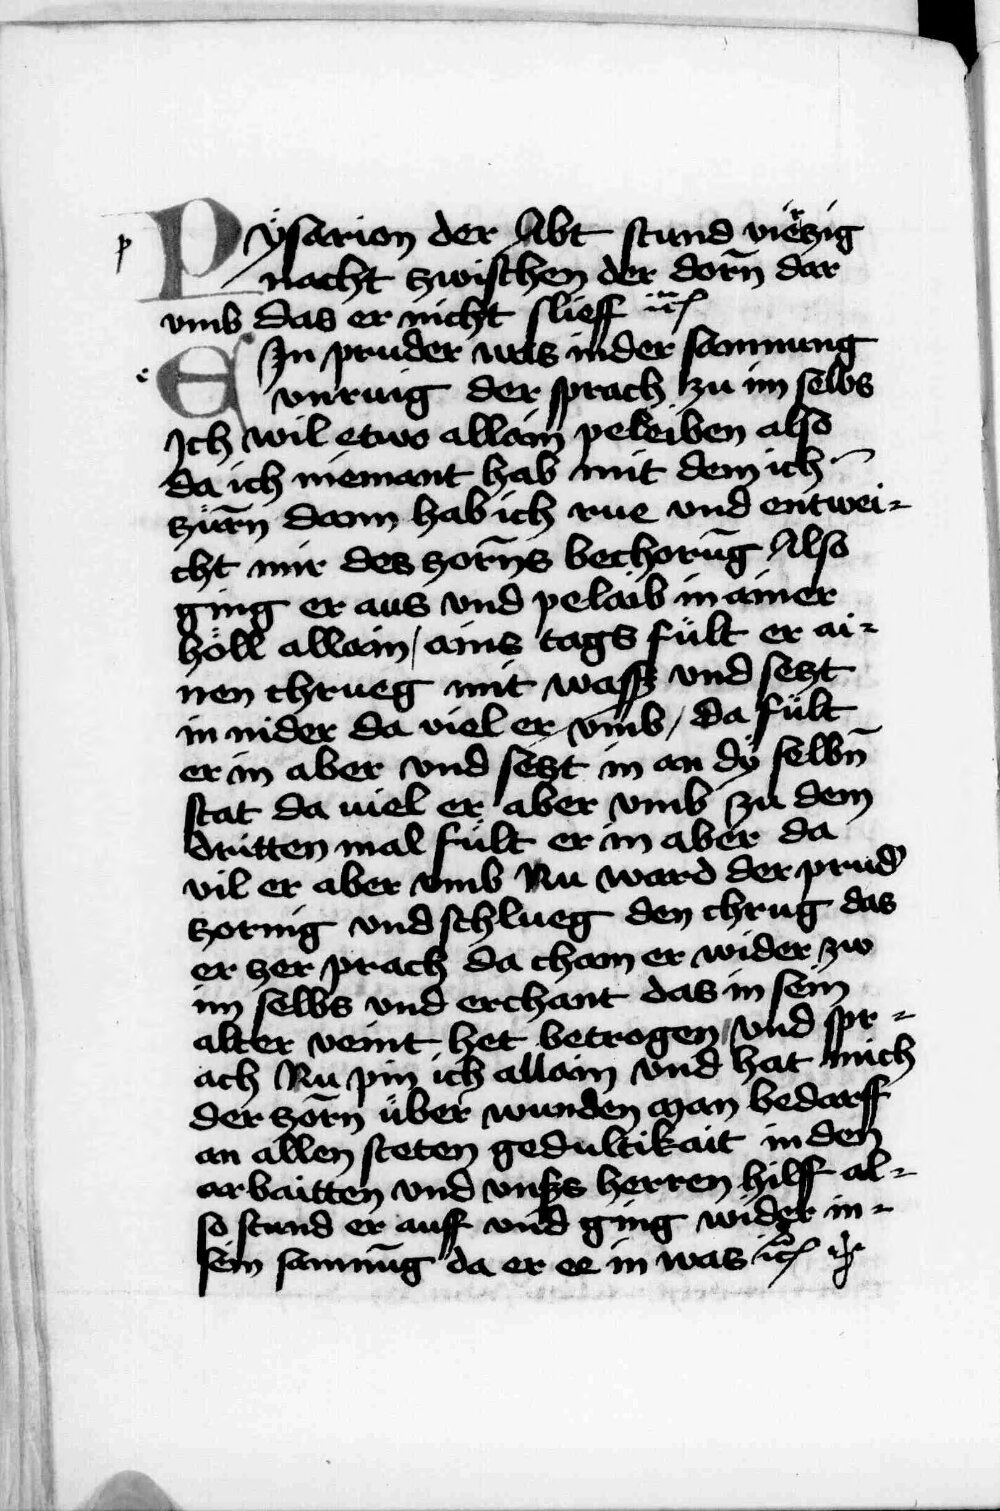 p Pÿsarion der Abt stund vierzig
nacht zwischen der dorn̄ dar
vmb das er nicht slieff
e EJn pruder was in der samnung
vnruig der sprach zu im selbs
Jch wil etwo allain peleiben also
da ich niemant hab mit dem ich
zürn̄ dann hab ich rue vnd entwei-
cht mir des zorn̄s bechorūg Also
ging er aus vnd pelaib in ainer
höll allain / ains tags fült er ai-
nen chrueg mit wasser vnd seczt
in nider da viel er vmb / da fült
er in aber vnd seczt in an dÿ selbn̄
stat da viel er aber vmb zu dem
dritten mal fült er in aber da
vil er aber vmb Nu ward der prud'
zornig vnd schlueg den chrug das
er zer prach da cham er wider zw
im selbs vnd erchant das in sein
alter veint het betrogen / vnd spr-
ach Nu pin ich allain vnd hat mich
der zorn̄ über wunden man bedarff
an allen steten gedultikait in den
arbaitten vnd vnsers herren hilff al-
so stund er auff vnd ging wider in-
sein samnūg da er ee in was